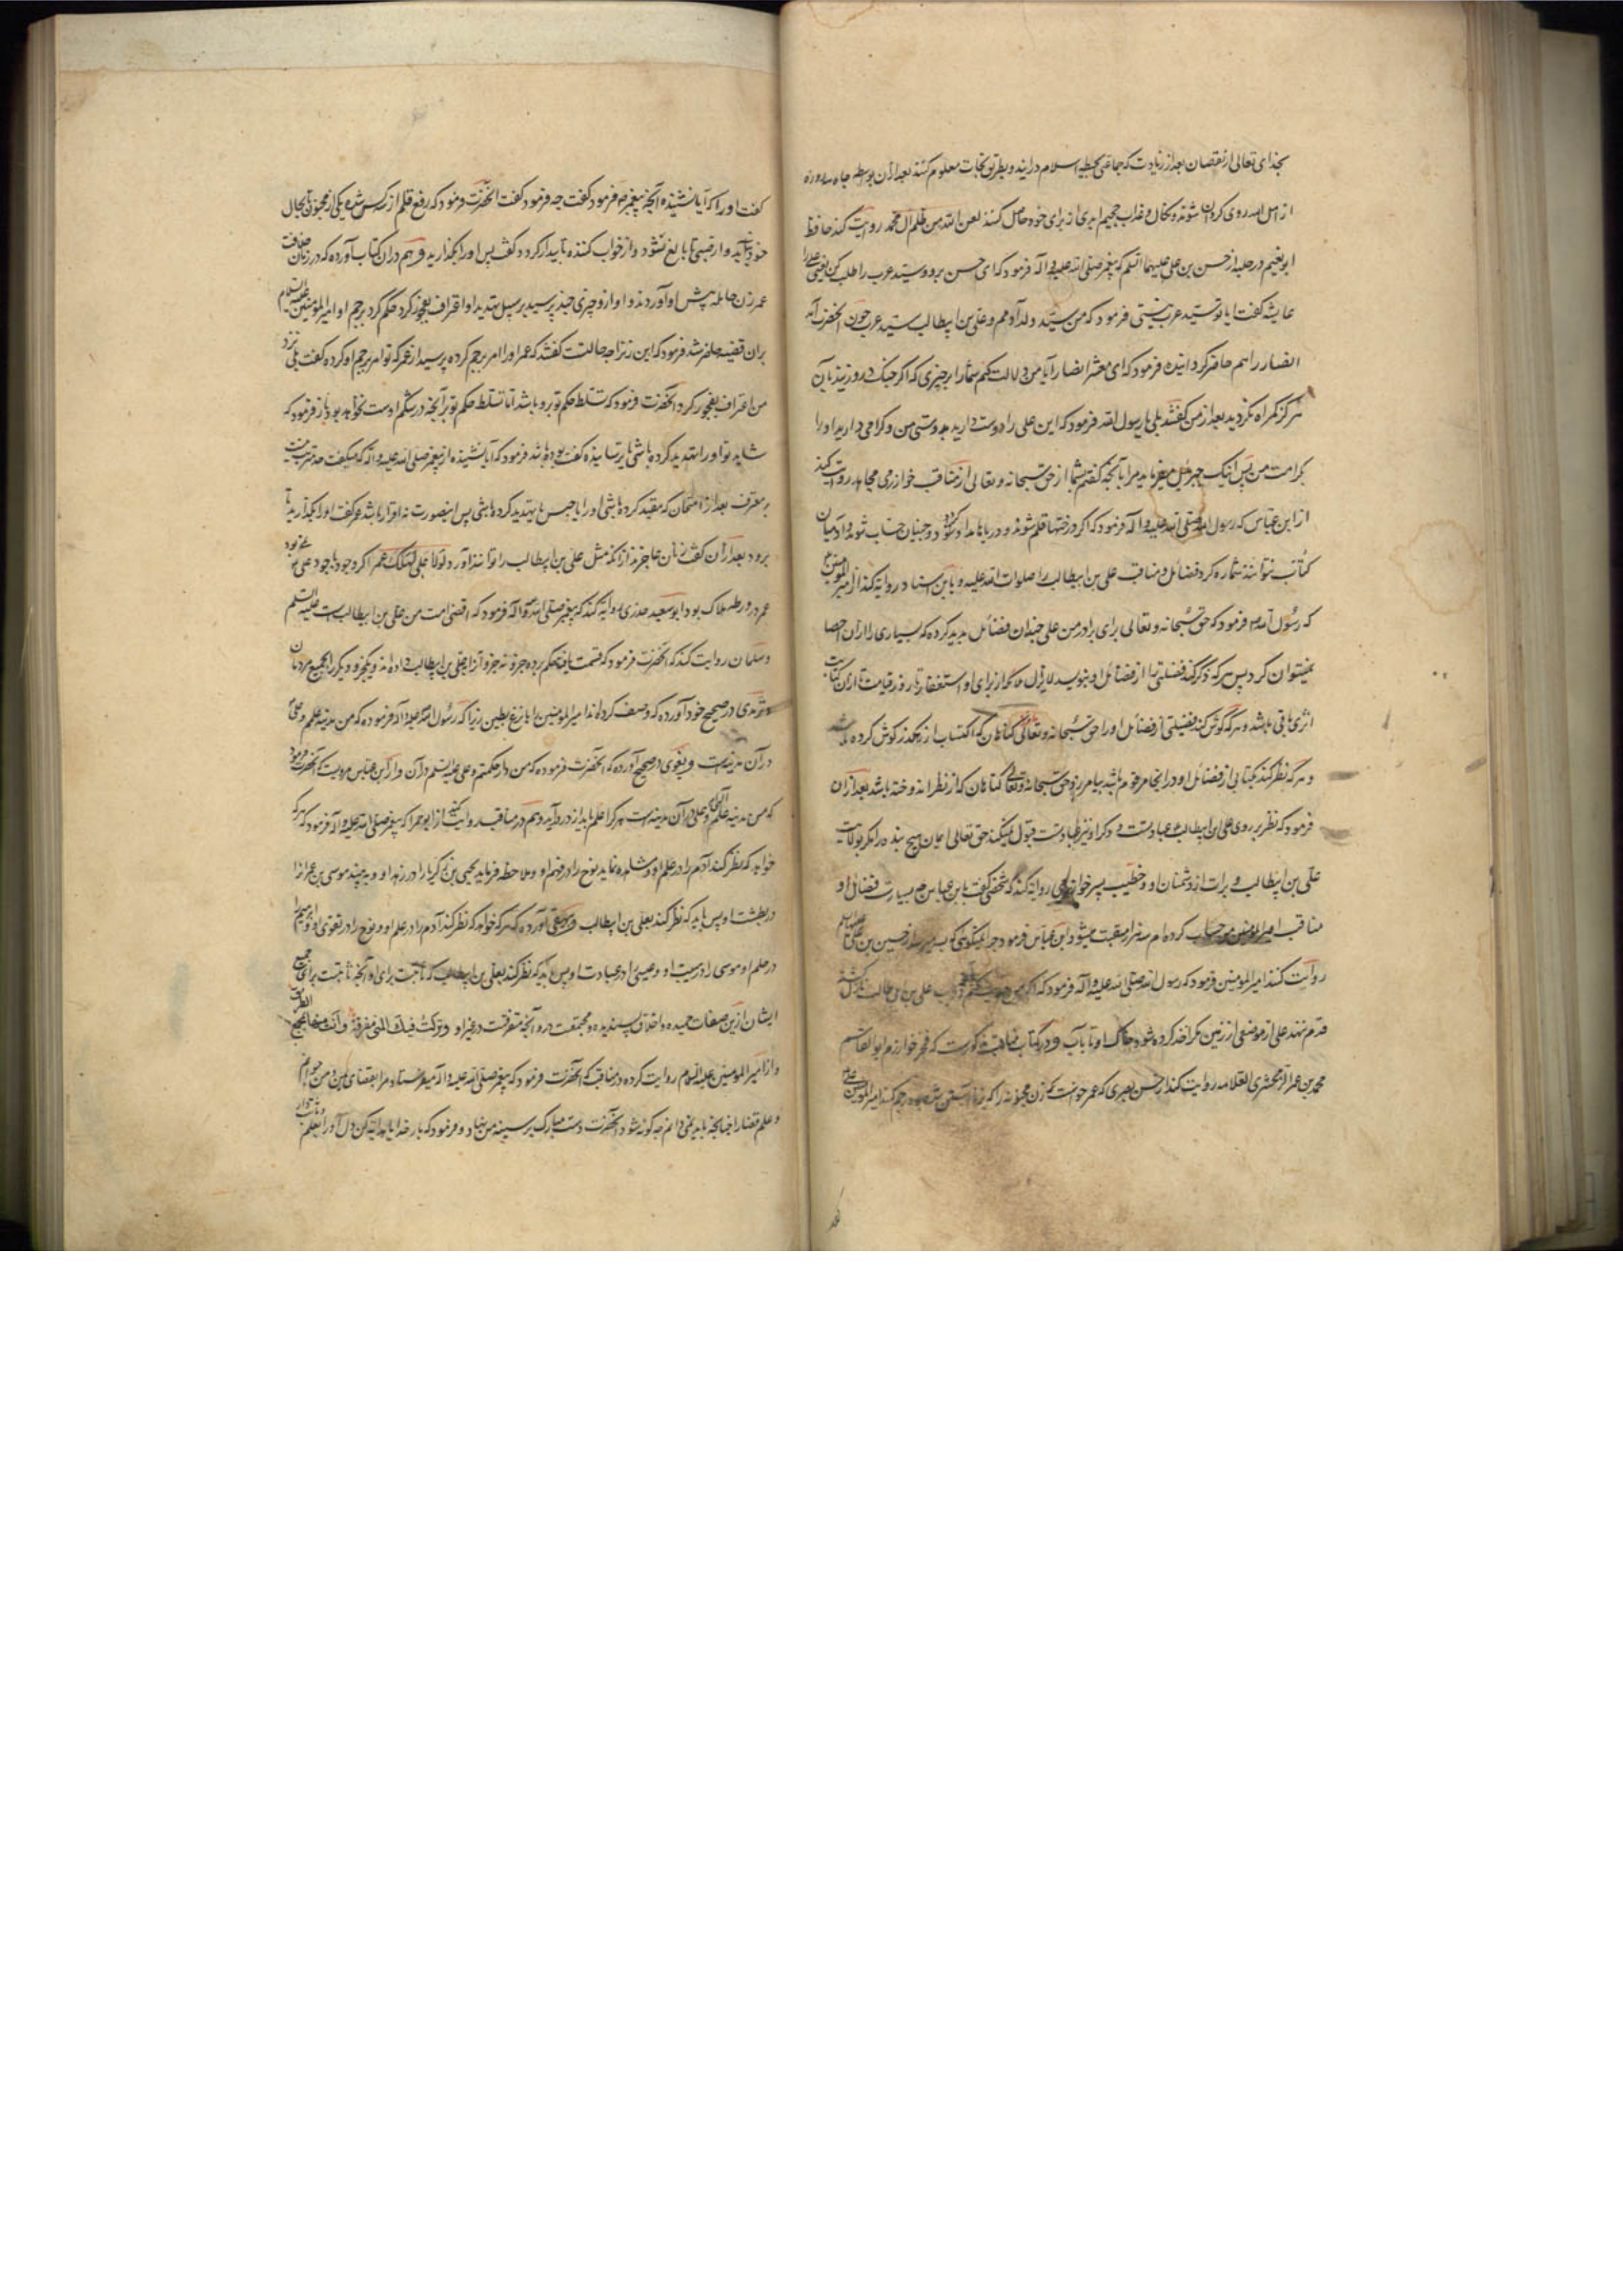 بخدای تعالی از نقصان بعد از زیادت که جماعتی بحیطه اسلام درآیند و بطریق نجات معلوم کنند بعد از آن بواسطه
از اهل الله روی گردان شوند و نکال و عذاب جحیم ابدی از برای خود حاصل کنند لعن الله من ظلم آل محمد روایت کند حافظ
ابو نعیم در حلیه از حسن بن علی علیهما السلم که پیغمبر صلی الله علیه و آله فرمود که ای حسن برو و سید عرب را طلب کن یعنی علی را
عایشه گفت ایا تو سید عرب نیستی فرمود که من سید ولد آدمم و علی بن ابیطالب سید عرب چون آنحضرت آمد
انصار را هم حاضر گردانیده فرمود که ای معشر انصار آیا من دلالت نکنم شما را بر چیزی که اگر چنگ در زنید بآن
هرگز گمراه نگردید بعد از من گفتند بلی یا رسول الله فرمود که این علی را دوست دارید بدوستی من و گرامی دارید او را
بکرامت من پس اینک جبرئیل میفرماید مرا بآنچه گفتم شما از حق سبحانه و تعالی از مناقب خوارزمی مجاهد روایت کند
از ابن عباس که رسول الله صلی الله علیه و آله فرمود که اگر درختها قلم شوند و دریاها مداد گردد و جنیان حساب شوند و آدمیان
کتاب نتوانند شماره کرد فضائل و مناقب علی بن ابیطالب را صلوات الله علیه و باین اسناد روایة کند از امیر المومنین
که رسول الله فرمود که حق سبحانه و تعالی برای برادر من علی چندان فضائل پدید کرده که بسیاری را از آن احصا
نمیتوان کرد پس هرکه ذکر کند فضیلتی را از فضائل او بنویسد لایزال ملائکه از برای او استغفار تا روز قیامت تا از آن کتابت
اثری باقی باشد و هرکه گوش کند فضیلتی از فضائل او را حق سبحانه و تعالی گناهان که اکتساب از رهگذر گوش کرده باشد
و هرکه نظر کند بکتابی از فضائل او در انجا مرقوم باشد بیامرزد حق سبحانه و تعالی گناهان که از نظر اندوخته باشد بعد از آن
فرمود که نظر بر روی علی ابن ابیطالب عبادتست و ذکر او نیز عبادتست قبول نمیکند حق تعالی ایمان هیچ بنده را مگر بولایت
علی بن ابیطالب و برات از دشمنان او و خطیب پسر خوارزمی روایة کند که شخصی گفت بابن عباس بسیارست فضائل او
مناقب امیر المومنین حساب کرده ام سه هزار منقبت میشود ابن عباس فرمود چرا نمیگویی که حسین بن علی علیهما السلم
روایت کند امیر المومنین فرمود که رسول الله صلی الله علیه و آله فرمود که اگر علی بن ابی طالب
قدم ننهد علی از موضعی از زمین مگر اخذ کرده شود خاک او تا بآب و در کتاب مناقب مذکورست که فخر خوارزم ابو القاسم
محمد بن عمر الزمخشری العلامه روایت کند از حسن بصری که عمر خواست که زن مجنونه را که بزنا آبستن شده بود رجم کند امیر المومنین علی
گفت او را که آیا نشنیده آنچه پیغمبر فرمود گفت چه فرمود گفت آنحضرت فرمود که رفع قلم از سه کس شده یکی از مجنون تا بحال
خود آید و از صبی تا بالغ شود و از خواب کننده تا بیدار گردد گفت پس او را بگذارید و هم در ان کتاب آورده که در زمان خلافت
عمر زن حامله پیش او آوردند و او ازو چیزی چند پرسید بر سبیل تهدید او اعتراف بفجور کرد حکم کرد برجم او امیر المومنین علیه السلام
بران قضیه حاضر شد فرمود که این زن را چه حالتست گفتند که عمر او را امر برجم کرده پرسید از عمر که تو امر برجم او کرده گفت بلی نزد
من اعتراف بفجور کرد آنحضرت فرمود که تسلط حکم تو برو باشد اما تسلط حکم تو بر آنچه در شکم اوست نخواهد بود باز فرمود که
شاید تو او را تهدید کرده باشی یا ترسانیده گفت بوده باشد فرمود که آیا نشنیده از پیغمبر صلی الله علیه و آله که میگفت حد مترتب نیست
بر معترف بعد از امتحان که مقید کرده باشی او را یا حبس یا تهدید کرده باشی پس اینصورت نه اقرار باشد عمر گفت او را بگذارید تا
برود بعد از آن گفت زنان عاجزند از آنکه مثل علی بن ابیطالب را توانند آورد لولا علی لهلک عمر اگر وجود با جود علی نمی بود
عمر در ورطه هلاک بود ابو سعید خدری روایة کند که پیغمبر صلی الله و آله فرمود که اقضی امت من علی بن ابیطالب است علیه السلم
و سلمان روایت کند که آنحضرت فرمود که قسمت یافته حکم بر ده جزو نه جزو آنرا بعلی بن ابیطالب داده اند و یکجزو دیگر را بجمیع مردمان
و ترمذی در صحیح خود آورده که وصف کرده اند امیر المومنین را بانزع بطین زیرا که رسول الله صلی الله علیه و آله فرموده که من مدینه علمم و علی
در آن مدینه است و بغوی در صحیح آورده که آنحضرت فرموده که من دار حکمتم و علی علیه السلم در آن و از ابن عباس مرویست که آنحضرت فرمود
که من مدینه علمم و علی در آن مدینه است هرکرا علم باید از در درآید و هم در مناقب روایت کند از ابو حمرا که پیغمبر صلی الله علیه و آله فرمود که هرکه
خواهد که نظر کند آدم را در علم او و مشاهده نماید نوح را در فهم او و ملاحظه فرماید یحیی بن زکریا را در زهد او و به بیند موسی بن عمرانرا
در بطشت او پس باید که نظر کند بعلی بن ابیطالب و بیهقی آورده که هرکه خواهد که نظر کند آدم را در علم او و نوح را در تقوی او و ابراهیم را
در حلم او موسی را در هیبت او و عیسی را در عبادت او پس باید که نظر کند بعلی بن ابیطالب که ثابتست برای او آنچه ثابتست برای جمیع
ایشان از ین صفات حمیده و اخلاق پسندیده و مجتمعست درو آنچه متفرقست در غیر او
و از امیر المومنین علیه السلام روایت کرده در مناقب که آنحضرت فرمود که پیغمبر صلی الله علیه و آله میفرستاد مرا بقضای یمن و من جوانم
و علم قضا را چنانچه باید نمی دانم چه گونه شود آنحضرت دست مبارک بر سینه من نهاد و فرمود که بار خدایا هدایة کن دل او را بعلم